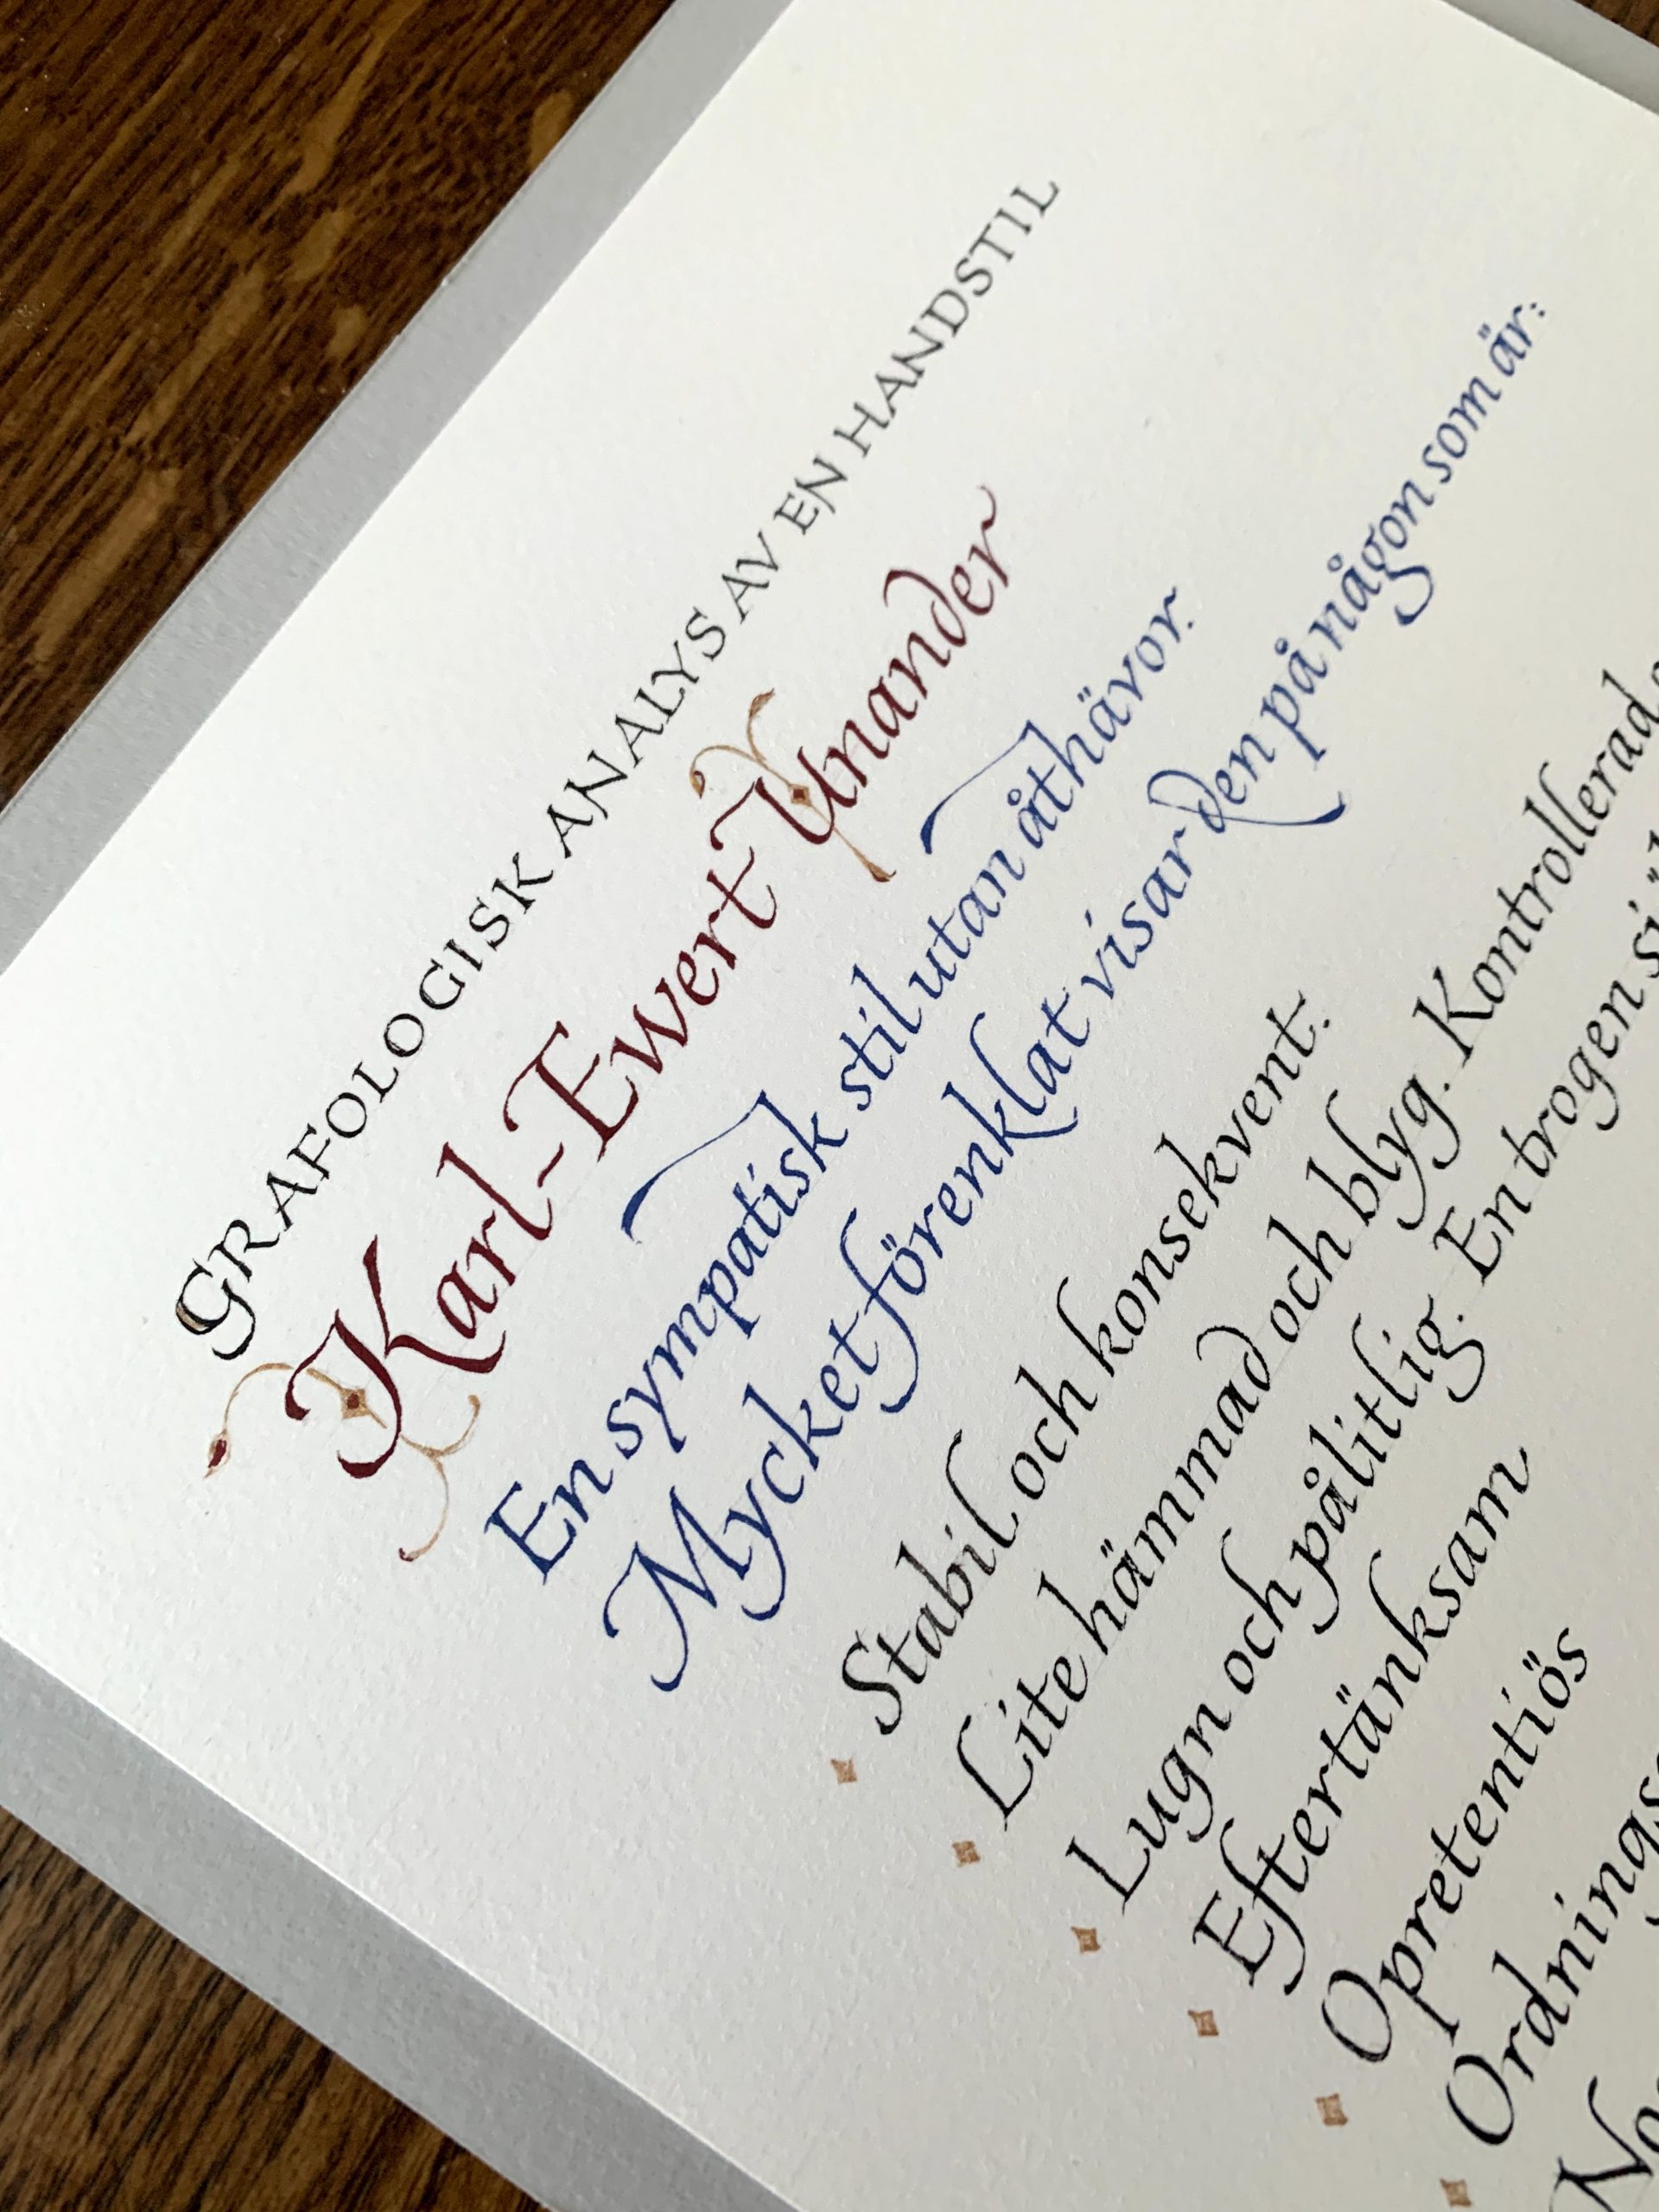 GRAFOLOGISK ANALYS AV EN HANDSTIL
Karl-Ewert Unander
En sympatisk stil utan åthävor.
Mycket förenklat visar den på någon som är:
Stabil och konsekvent.
Lite hämmad och blyg. Kontrollerad
Lugn och pålitlig. En trogen
Eftertänksam
Opretentiös